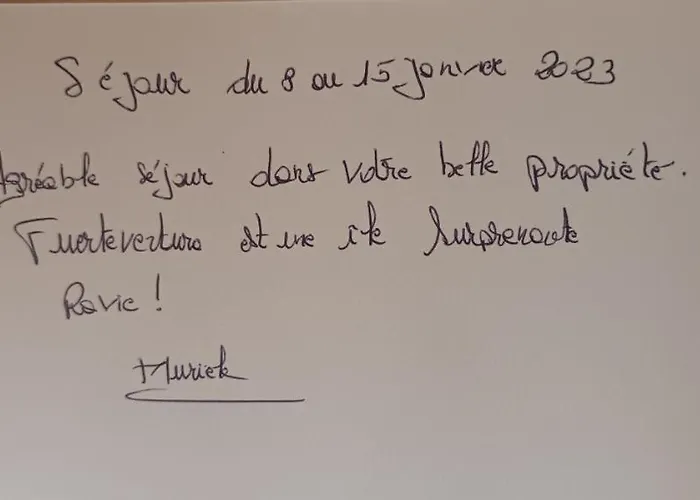 Séjour du 8 au 15 janvier 2023
Agréable séjour dans votre belle propriété.
Fuerteventura est une île surprenante
Ravie !
Muriel